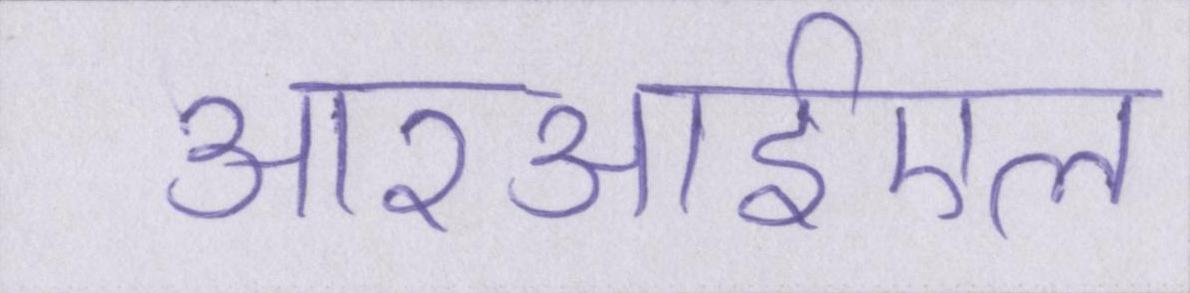 आरआईएल